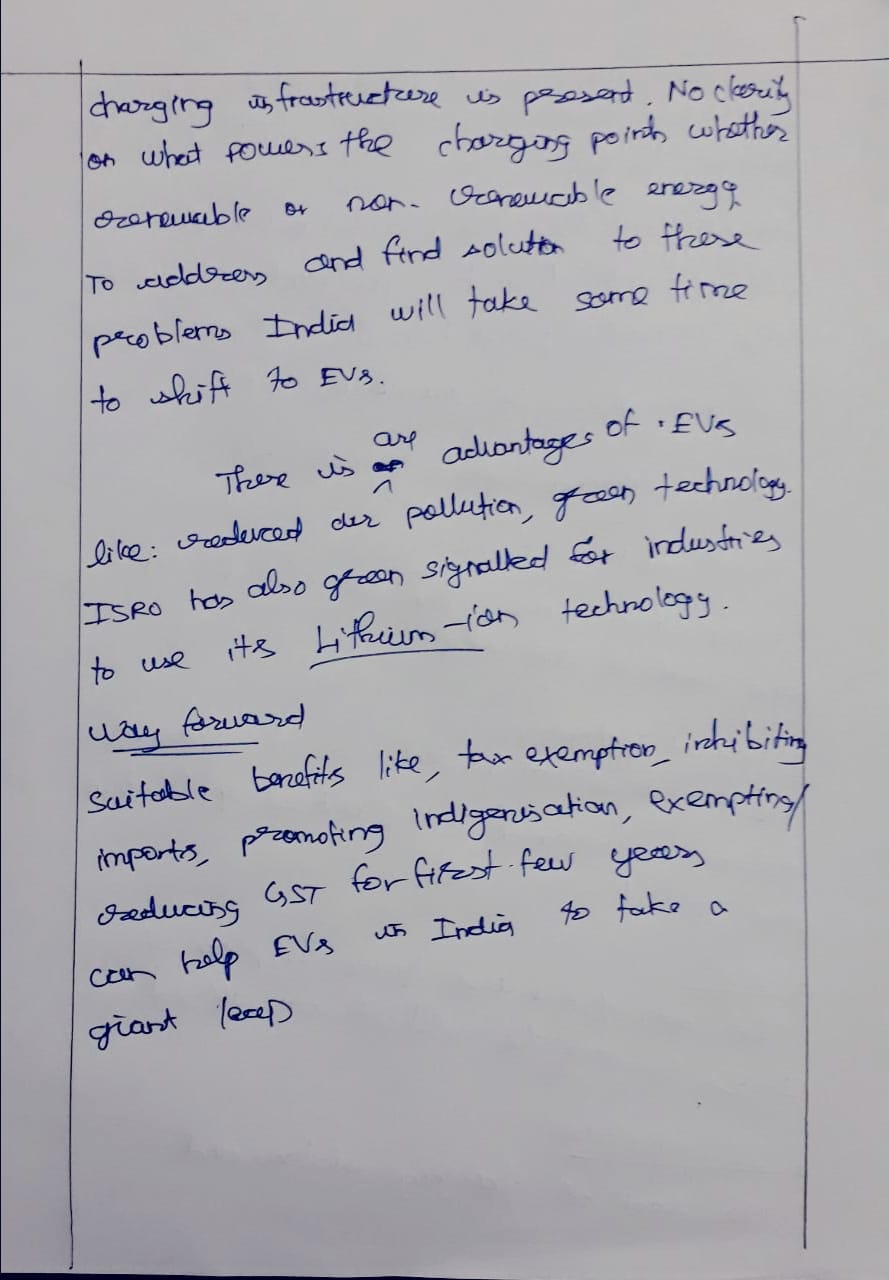 charging infrastructure is present. No clarity
on what powers the charging points whether
renewable or non-renewable energy.
To address and find solution to these
problems India will take some time
to shift to EVs.
There is are advantages of EVs
like: reduced air pollution, green technology.
ISRO has also green signalled for industries
to use its Lithium-ion technology.
Way forward
Suitable benefits like, tax exemption, inhibiting
imports, promoting indigenisation, exempting/
reducing GST for first few years
can help EVs in India to take a
giant leap